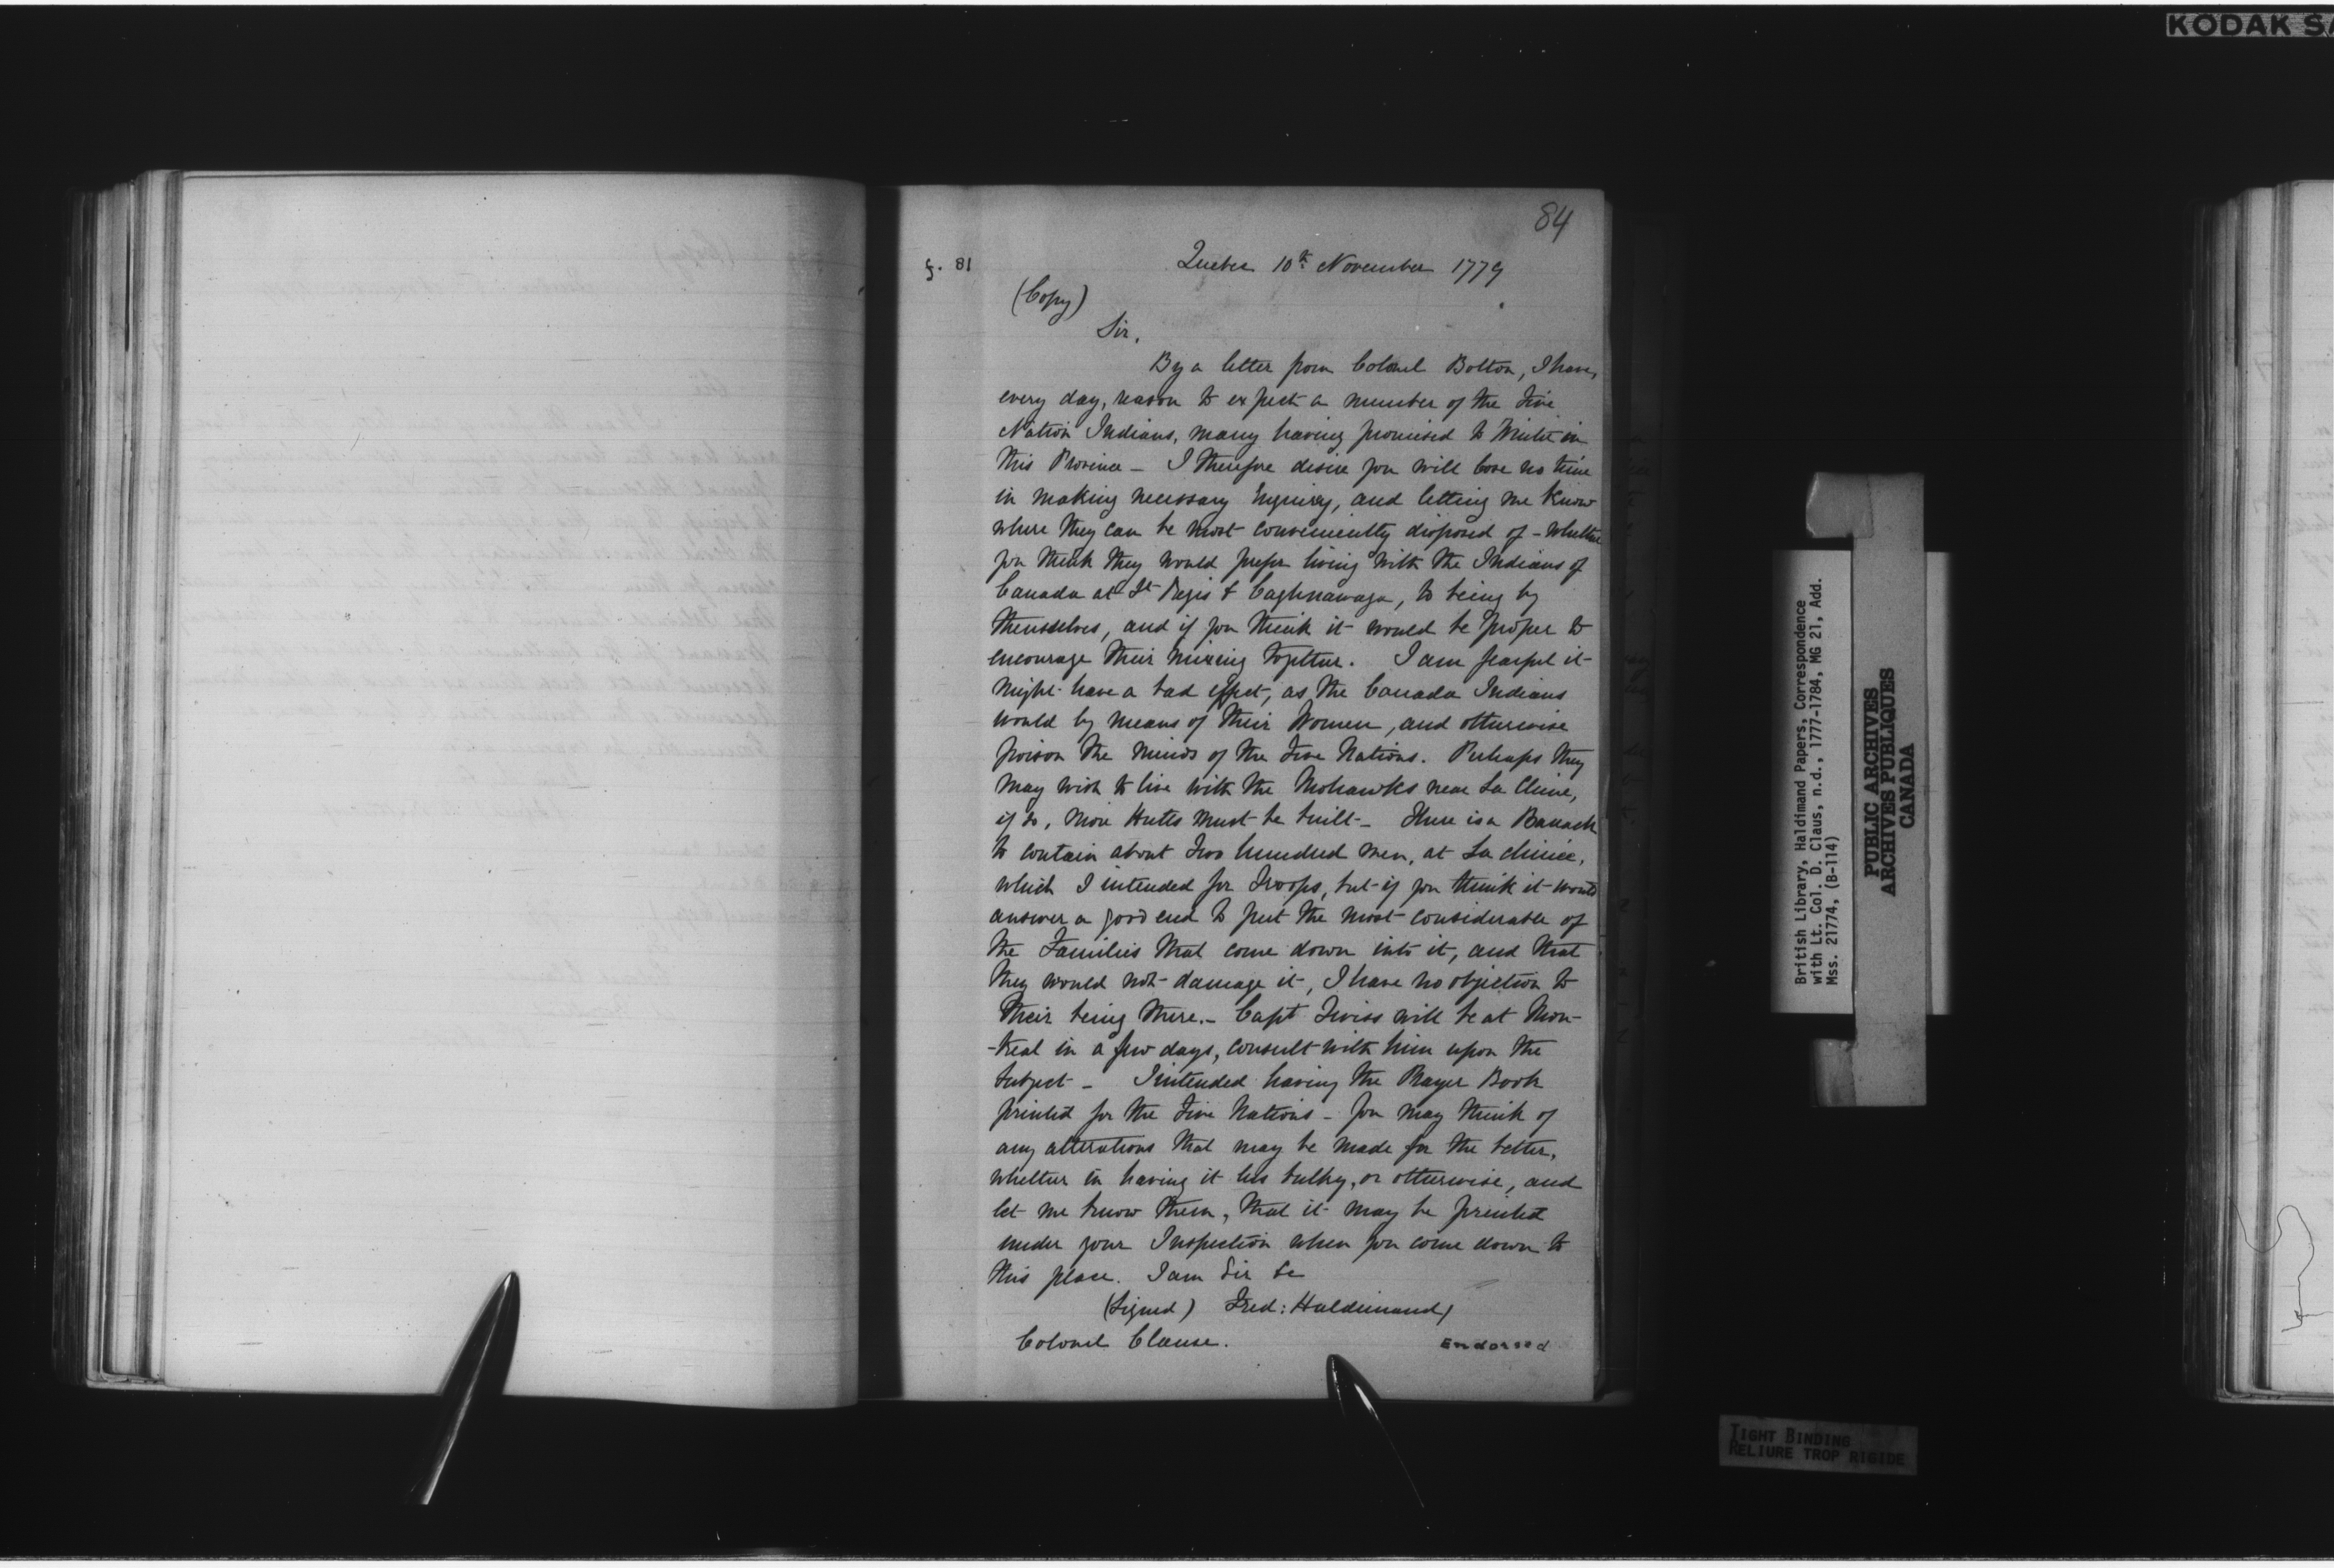 KODAK SA
84
f. 81
Quebec 10th November 1779
(Copy)
Sir,
By a letter from Colonel Bolton, I have,
every day, reason to expect a number of the Five
Nation Indians, many having promised to Winter in
this Province - I therefore desire you will lose no time
in making necessary Enquiry, and letting me know
where they can be most conveniently disposed of - whether
you think they would prefer living with the Indians of
Canada at St Regis & Caghnawaga, to being by
themselves, and if you think it would be proper to
encourage their mixing together. I am fearful it
might have a bad effect, as the Canada Indians
would by means of their Women, and otherwise
poison the minds of the Five Nations. Perhaps they
may wish to live with the Mohawks near La Chine,
if so, more Hutts must be built - There is a Barrack
to contain about Two hundred men, at La chine,
which I intended for Troops, but if you think it would
answer a good end to put the most considerable of
the Families that come down into it, and that
they would not damage it, I have no objection to
their being there. - Capt Twiss will be at Mon-
-treal in a few days, consult with him upon the
Subject - I intended having the Prayer Book
printed for the Five Nations - you may think of
any alterations that may be made for the better,
whether in having it less bulky, or otherwise, and
let me know them, that it may be printed
under your Inspection when you come down to
this place. I am Sir &c
(Signed) Fred: Haldimand
Colonel Clause.
Endorsed
British Library, Haldimand Papers, Correspondence
with Lt. Col. D. Claus, n.d., 1777-1784, MG 21, Add.
Mss. 21774, (B-114)
PUBLIC ARCHIVES
ARCHIVES PUBLIQUES
CANADA
TIGHT BINDING
RELIURE TROP RIGIDE